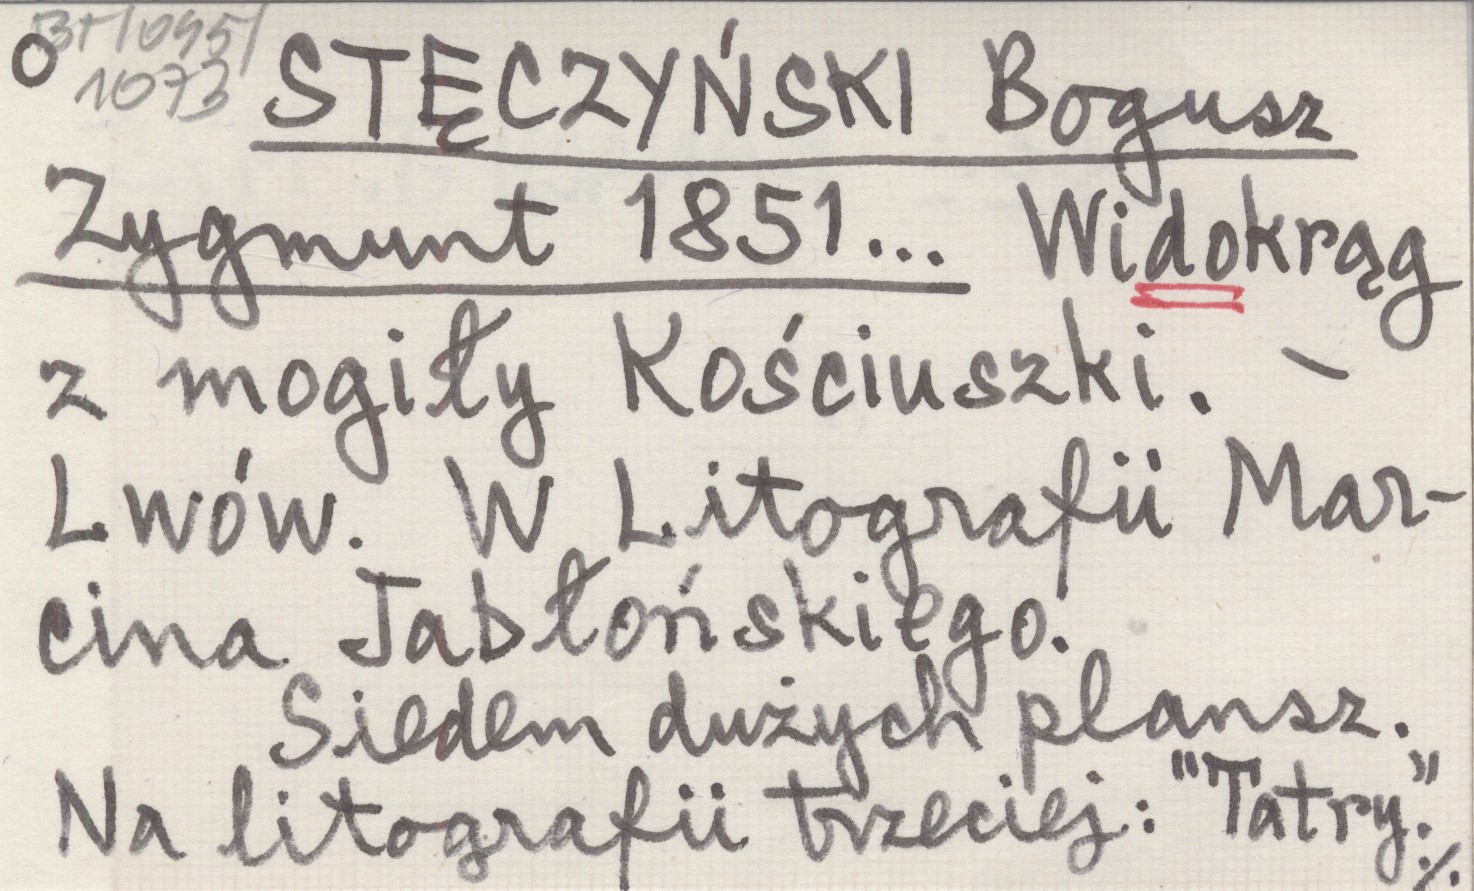 1073
STĘCZYŃSKI Bogusz
Zygmunt 1851... Widokrąg
z mogiły Kościuszki. –
Lwów. W Litografii Mar-
cina Jabłońskiego.
Siedem dużych plansz.
Na litografii trzeciej: "Tatry."
./.